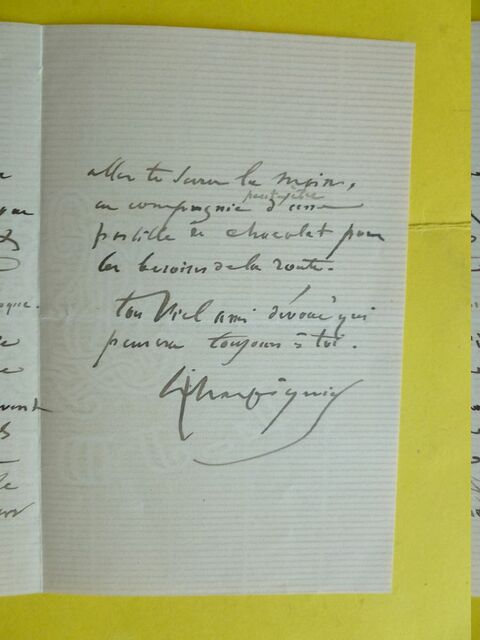 aller te serrer la main,
en compagnie peut-être d'une
pastille de chocolat pour
les besoins de la route.
ton Vieil ami dévoué qui
pensera toujours à toi.
HHarpignies